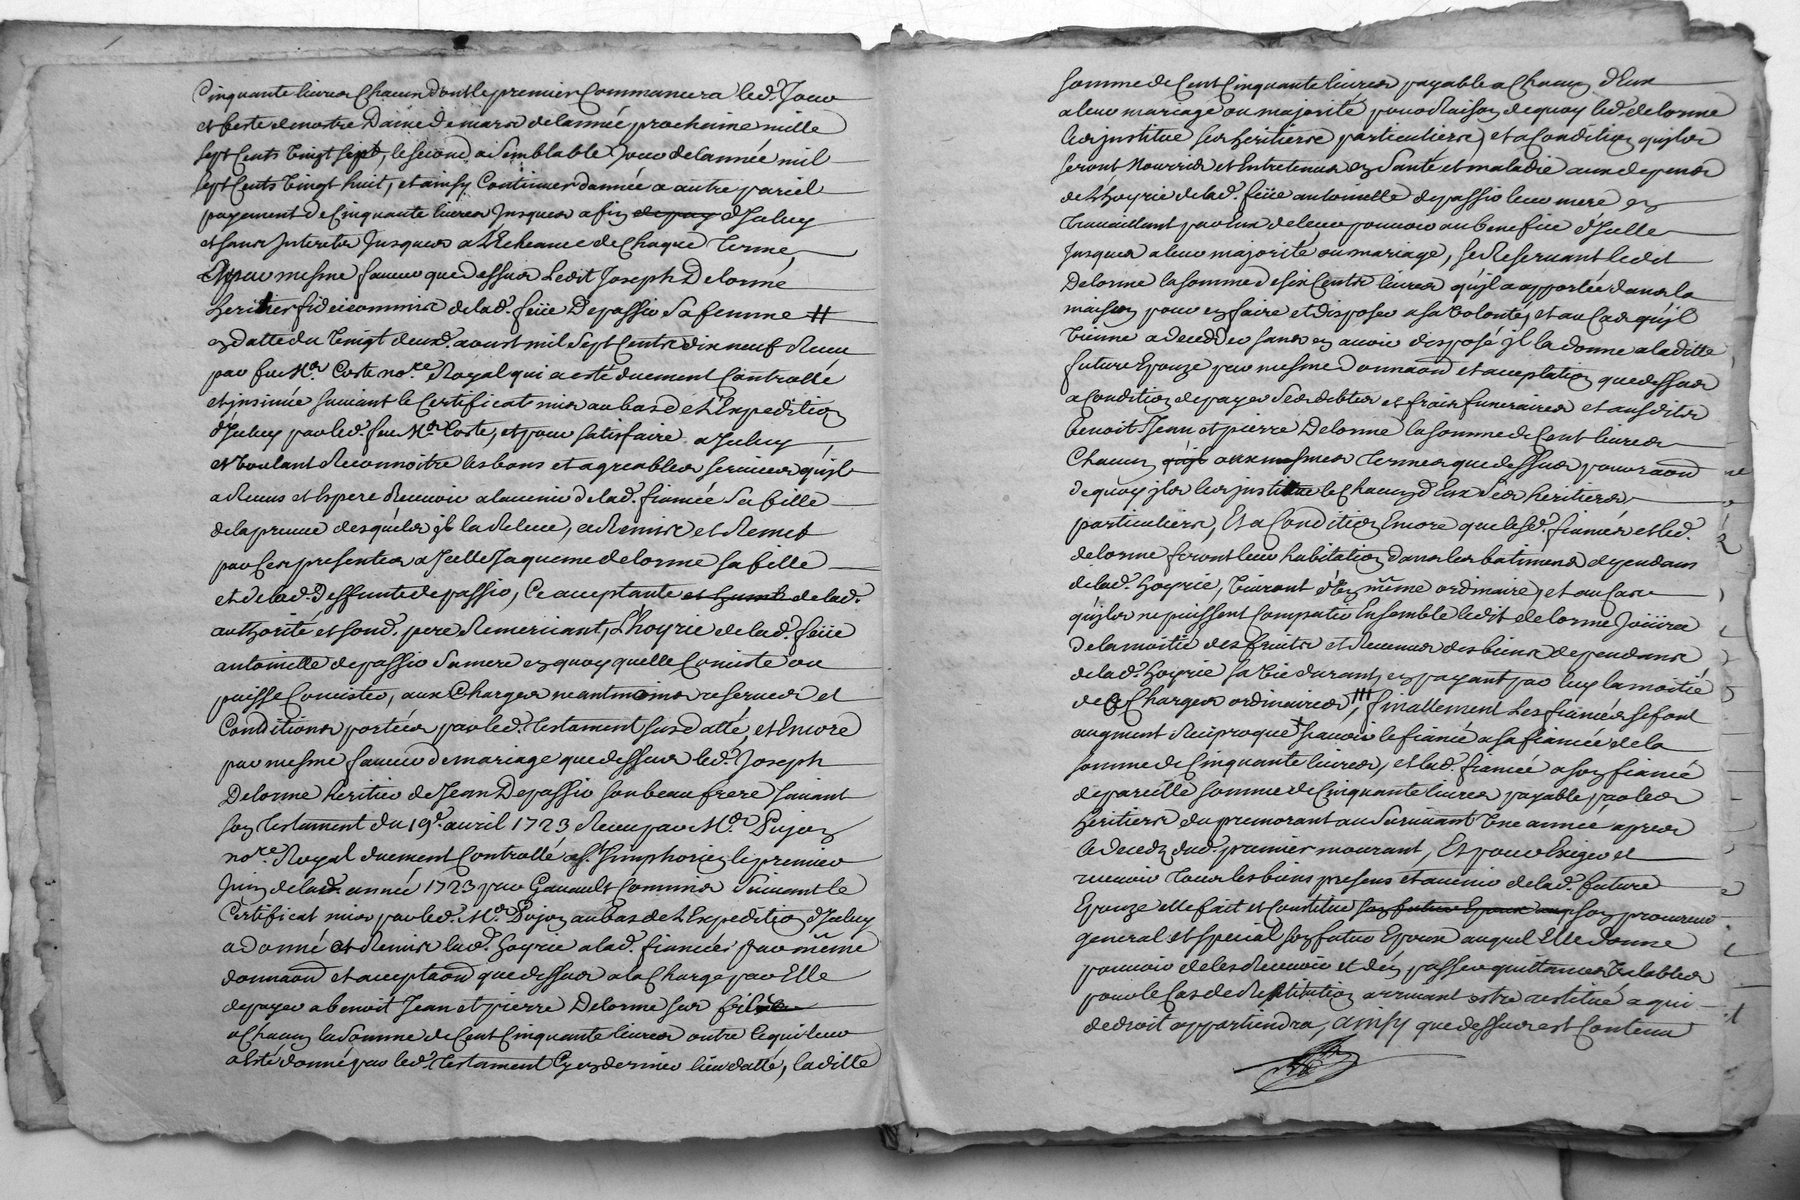 Cinquante livres Chacun dont le premier Commancera led. Jour
et feste de notre Dame de mars de lannée prochaine mille
sept Cents Vingt sept, le second a semblable Jour de lannée mil
sept Cents Vingt huit, et ainsy Continuer dannée a autre pareil
payement de Cinquante livres Jusques a fin de pay d'Iceluy
et sans Interets Jusques a l'Echeance de Chaque Terme,
Et par mesme faveur que dessus Ledit Joseph Delorme
heritier fideicommis de lad. feüe Depassio sa femme #
en datte du Vingt deux. aoust mil sept Cents dix neuf Receu
par feu Mr. Coste nore. Royal qui a esté duement Controllé
et insinué suivant le Certificat mis au bas de l'Expedition
d'Iceluy par led. feu Mr. Coste, et pour satisfaire a Iceluy
et Voulant Reconnoitre les bons et agreables services qu'il
a Receus et Espere Recevoir a lavenir de lad. fiancée sa fille
de la preuve desquels il la Releve, a Remis et Remet
par Ces presentes a Icelle Jaqueme delorme sa fille
et de lad. Deffunte depassio, Ce acceptante de lad.
authorité et sond. pere Remerciant, L'hoyrie de lad. feüe
antoinette depassio sa mere en quoy quelle Consiste ou
puisse Consister, aux Charges neantmoins reservees et
Conditions portées par led. testament susd datté, et Encore
par mesme faveur de mariage que dessus led. Joseph
Delorme heritier de Jean Depassio son beau frere suivant
son testament du 19e. avril 1723 Receu par Mr. Pujon
nore. Royal duement Controllé a St. Simphorien le premier
Juin de lad. année 1723 par Gavault Commis Suivant le
Certificat mis par led. Mr. Pujon au bas de l'Expedition d'Iceluy
a donné et Remis lad. hoyrie a lad. fiancée par mẽme
donnaõn et acceptaõn que dessus a la Charge par Elle
de payer a benoit Jean et pierre Delorme ses
a Chacun la somme de Cent Cinquante livres outre Ce qui leur
a Esté donné par led. testament Cy en dernier lieu datté, laditte
somme de Cent Cinquante livres payable a Chacun d'Eux
a leur mariage ou majorité pour Raison de quoy led. delorme
les institue ses heritiers particuliers, et a Condition qu'ils
seront Nourris et Entretenus en Santé et maladie aux depens
de L'hoyrie de lad. feüe antoinette depassio leur mere en
travaillant par Eux de leur pouvoir au benefice d'Icelle
Jusques a leur majorité ou mariage, se Reservant ledit
Delorme la somme de six Cents livres qu'il a apportée dans la
maison pour en faire et disposer a sa Volonté, et au Cas qu'il
Vienne a deceder sans en avoir disposé il la donne a laditte
future Epouze par mesme donnaõn et acceptation que dessus
a Condition de payer ses debtes et frais funeraires et ausdits
benoit Jean et pierre Delorme la somme de Cent livres
Chacun aux mesmes termes que dessus pour raõn
de quoy il les institue Chacun d'Eux ses heritiers
particuliers, Et a Condition Encore que lesd. fiancés et led.
delorme feront leur habitation dans les batimens dependans
de lad. hoyrie, Vivront d'Un mẽme ordinaire, et au Cas
qu'ils ne puissent Compatir Ensemble ledit delorme Joüira
de la moitié des fruits et Revenus des biens dependans
de lad. hoyrie sa Vie durant, en payant par luy la moitié
des Charges ordinaires, finallement Les fiancés se font
augment Reciproque Sçavoir le fiancé a sa fiancée de la
somme de Cinquante livres, et lad. fiancée a son fiancé
de pareille somme de Cinquante livres payable par les
heritiers du premorant au Survivant Une année apres
le decedz dud. premier mourant, Et pour Exiger et
recevoir Tous les biens presens et avenir de lad. future
Epouze elle fait et Constitue son futur Epoux son procureur
general et special son futur Epoux auquel Elle donne
pouvoir de les Recevoir et d'en passer quittances Valables
pour le Cas de Restitution arrivant estre restitué a qui
de droit appartiendra, ainsy que dessus est Contenu